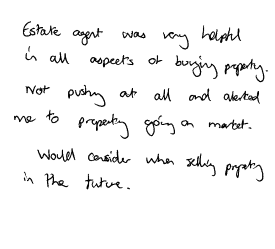 Estate agent was very helpful
in all aspects of buying property.
Not pushy at all and alerted
me to property going on market.
Would consider when selling property
in the future.